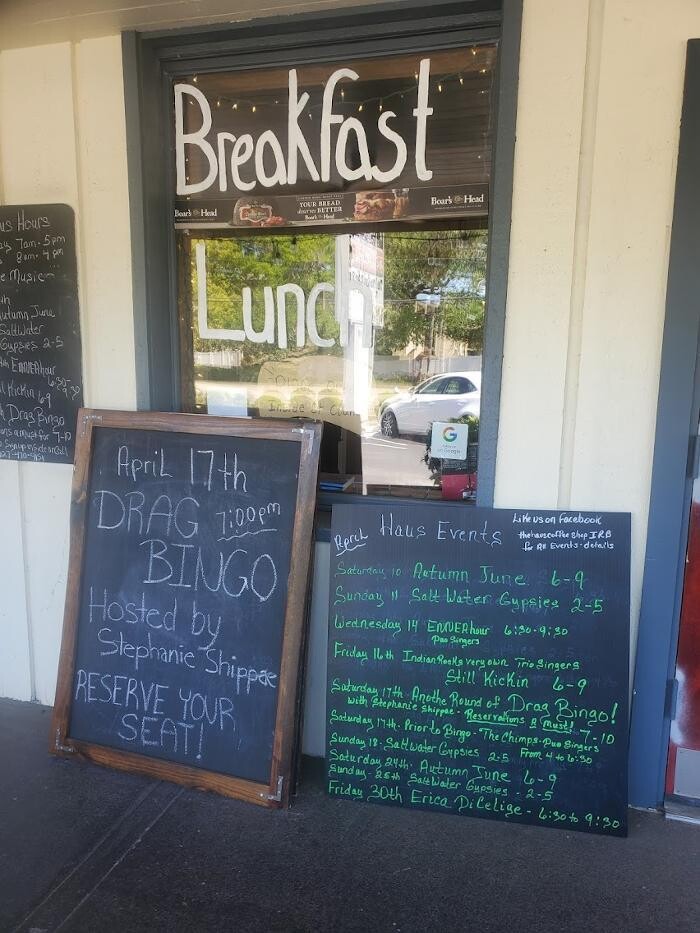 Breakfast
Boar's Head
YOUR BREAD
deserves BETTER
Boar's Head
Boar's Head
Lunch
us Hours
7am - 5pm
8am - 4pm
Music
Autumn June
SaltWater
Gypsies 2-5
ENNERhour
6:30-9:30
Kickin 6-9
Drag Bingo
7-10
Inside or
G
April 17th
DRAG 7:00pm
BINGO
Hosted by
Stephanie Shippae
RESERVE YOUR
SEAT!
April Haus Events
Like us on Facebook
thehauscoffeeshop IRB
for All Events - details
Saturday 10 Autumn June 6-9
Sunday 11 Salt Water Gypsies 2-5
Wednesday 14 ENNERhour 6:30-9:30
Duo Singers
Friday 16th Indian Rocks very own Trio Singers
Still Kickin 6-9
Saturday 17th - Anothe Round of Drag Bingo!
with Stephanie Shippae - Reservations a must! 7-10
Saturday 17th - Prior to Bingo - The Chimps - Duo Singers
From 4 to 6:30
Sunday 18 - Saltwater Gypsies 2-5
Saturday 24th - Autumn June 6-9
Sunday - 25th Saltwater Gypsies - 2-5
Friday 30th Erica DiCeligе - 6:30 to 9:30